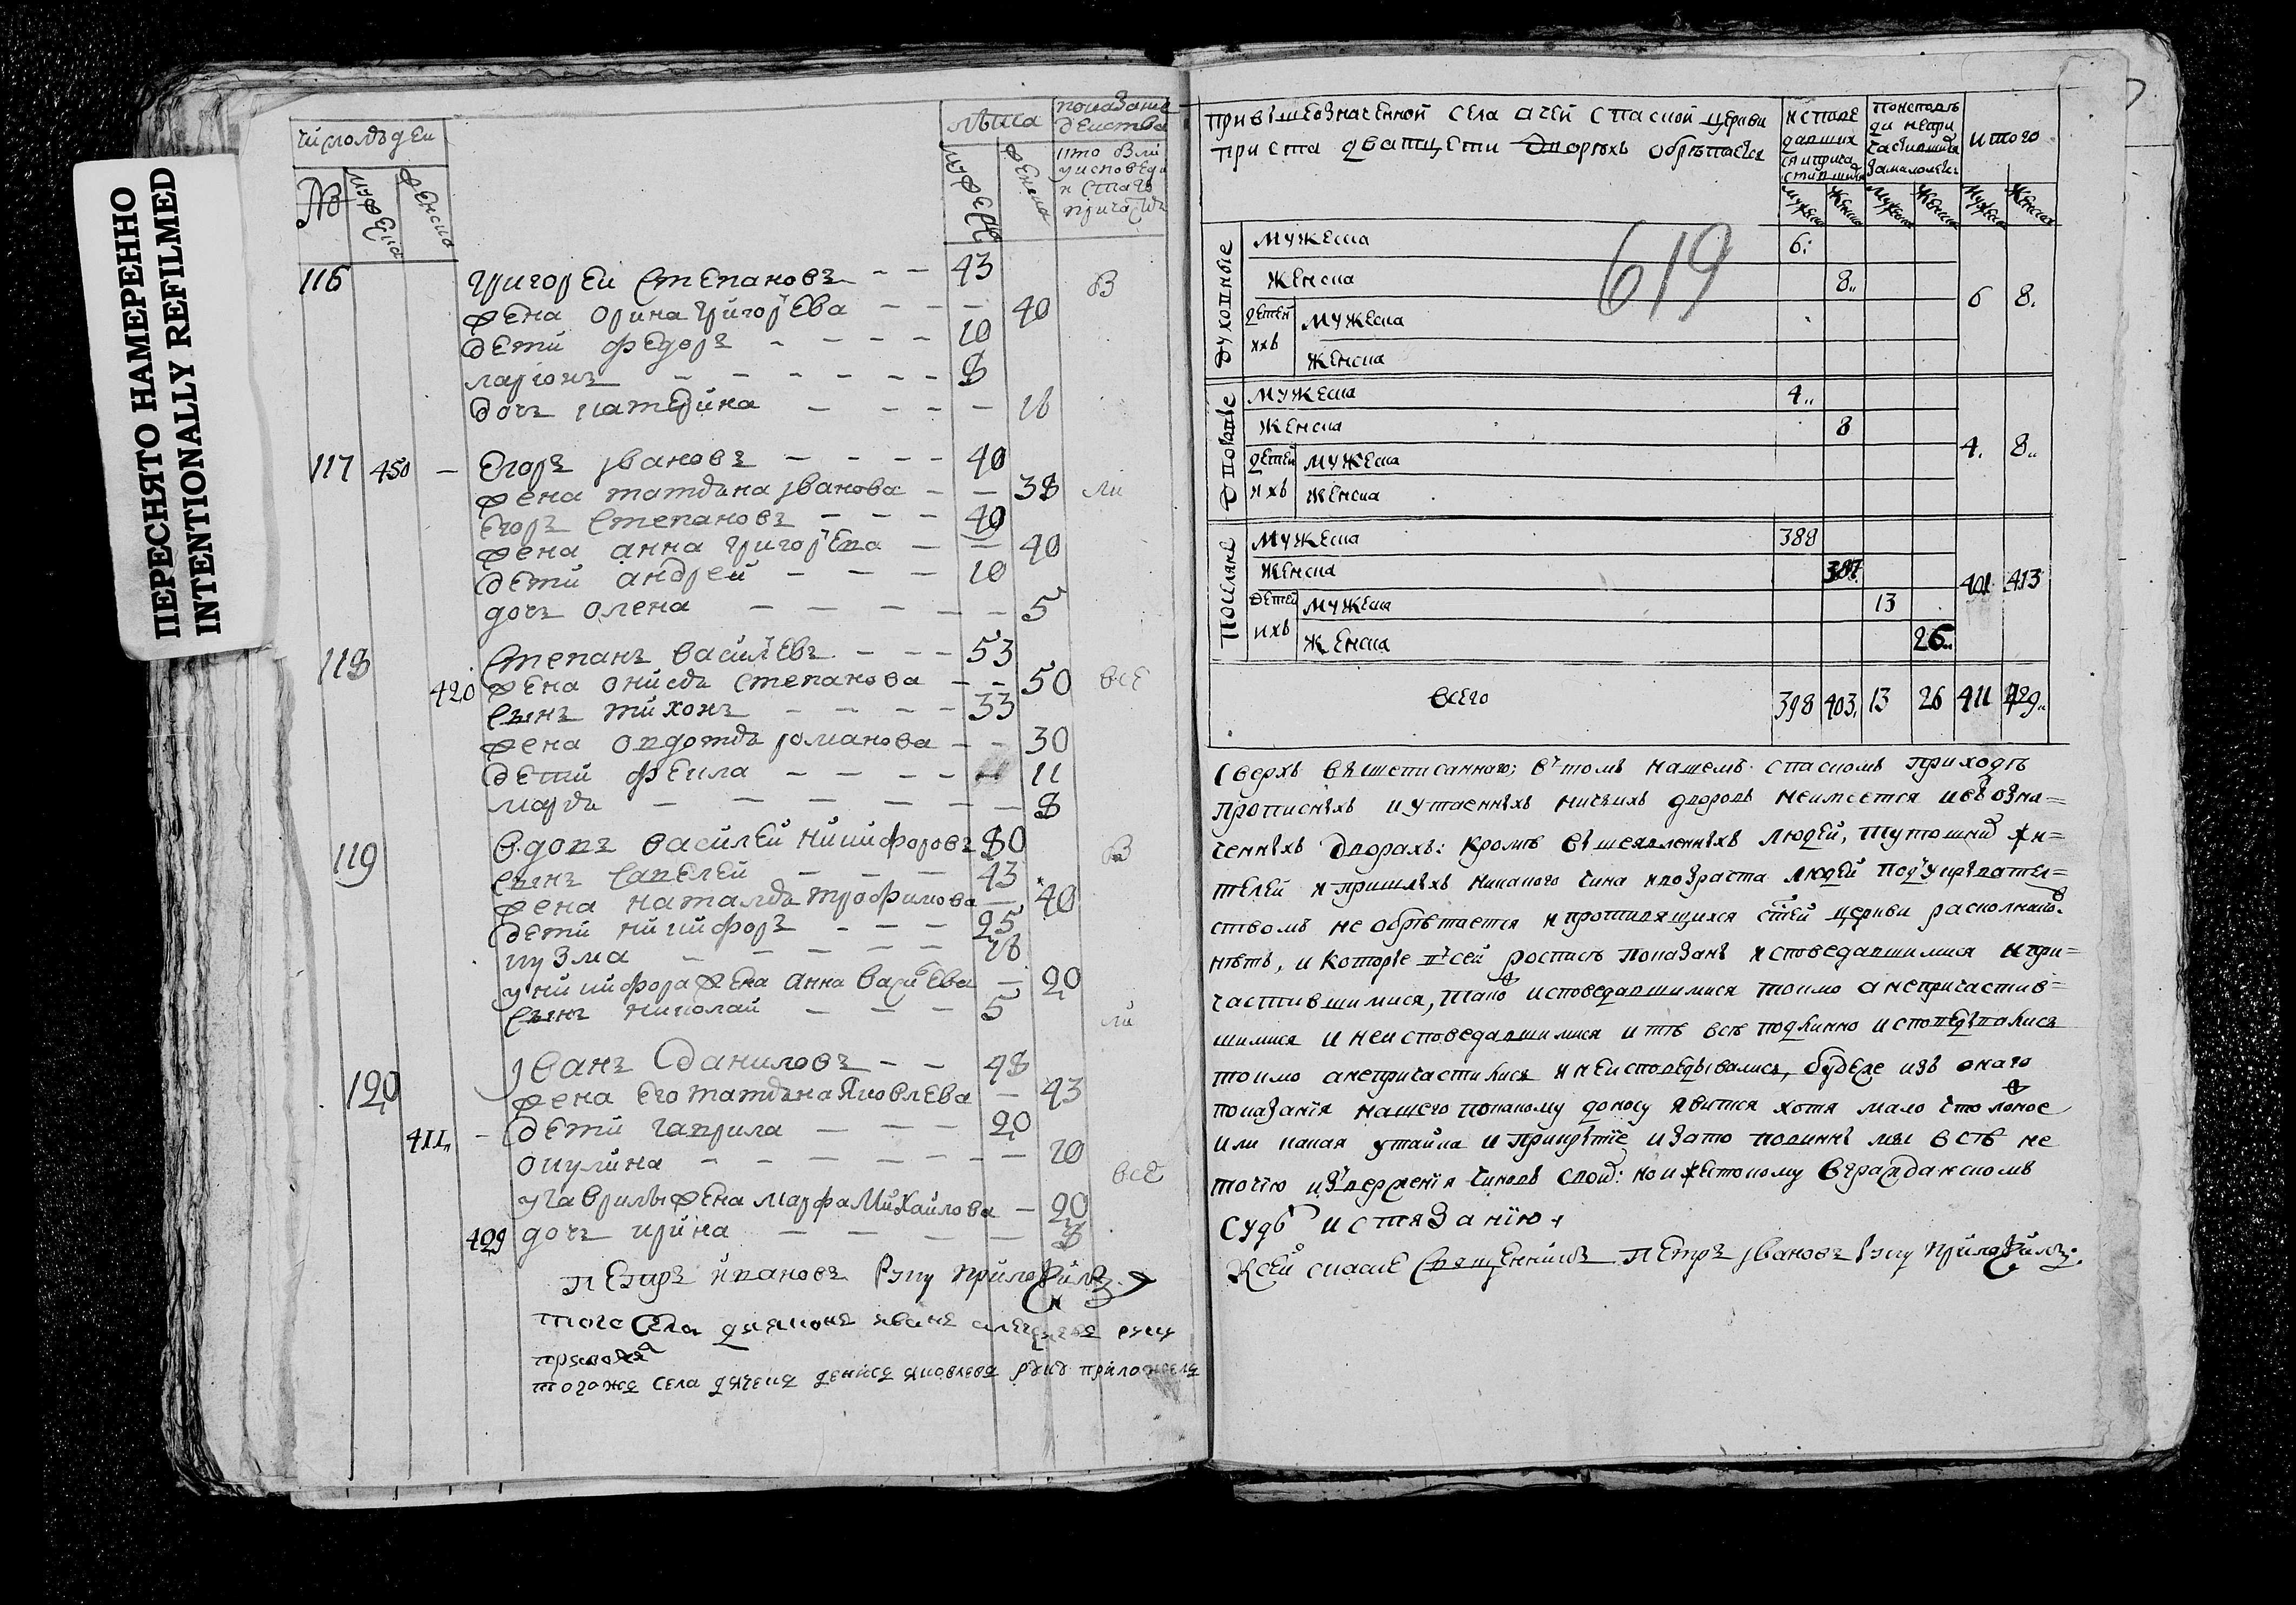 ПЕРЕСНЯТО НАМЕРЕННО
INTENTIONALLY REFILMED
число людеи
лѣта
показание
действа
кто был
у исповеди
и стаго
№
мужеска
женска
мужеска
женска
116 григореи степановъ 43
жена орина григорева 40 В
дети федоръ 10
ларионъ 8
дочъ катерина
117 450 Егоръ iвановъ 40
жена татьяна iванова 38 ли
Егоръ степановъ 40
жена анна григорева 40
дети андрей 10
дочъ олена 5
118 степанъ василевъ 53
420 жена онисья степанова 50 все
сынъ тихонъ 33
жена овдотья романова 30
дети фекла 11
марья 8
119 вдовъ василей никифоровъ 80 В
сынъ савелей 43
жена наталья трофимова 40
дети никифоръ 25
кузма
у никифора жена анна 20
сынъ николай 5 ли
120 iванъ даниловъ 48
жена его татьяна яковлева 43
411 дети гаврила 20
окулина 10 все
у гаврилы жена марфа михайлова 20
409 дочъ ирина 8
петръ ивановъ руку приложилъ
того села диаконъ иванъ руку
приложилъ
тогоже села дьячекъ денисъ яковлевъ руку приложилъ
при вышеозначенной села ачей спаской церкви
при ста дватцети дворехъ обретается
исповедавшихся и причастившихся
по исповеди не причастившихся за малолетствомъ
итого
мужеска женска мужеска женска мужеска женска
619
духовные
мужеска 6
женска 8
детей ихъ мужеска 6 8
женска
мужеска 4
женска 8
детей ихъ мужеска 4 8
женска
посацкие
мужеска 388
женска 387
детей ихъ мужеска 13 401 413
женска 26
всего 398 403 13 26 411 429
сверхъ вышеписанного; в томъ нашемъ спаскомъ приходе
прописныхъ и утаенныхъ никакихъ дворовъ неимеется и в озна=
ченныхъ дворахъ: кроме вышеявленныхъ людей, тутошнихъ жи=
телей и пришлыхъ никакого чина и возраста людей под укрывател=
ствомъ не обретается и противящихся стей церкви расколнико
нетъ, и которые в сей росписе показаны исповедавшимися и при=
частившимися, тако исповедавшимися токмо а непричастив=
шимися и неисповедавшимися и те все подлинно исповедывались
токмо а непричастились и неисповедывались, будеже изъ оного
показания нашего по какому доносу явится хотя мало что ложное
или какая утайка и прикрытие и зато повинны мы в ств не
точию извержения чиновъ своихъ: но и жестокому в гражданскомъ
суде истязанию
к сей скаске священникъ петръ iвановъ руку приложилъ